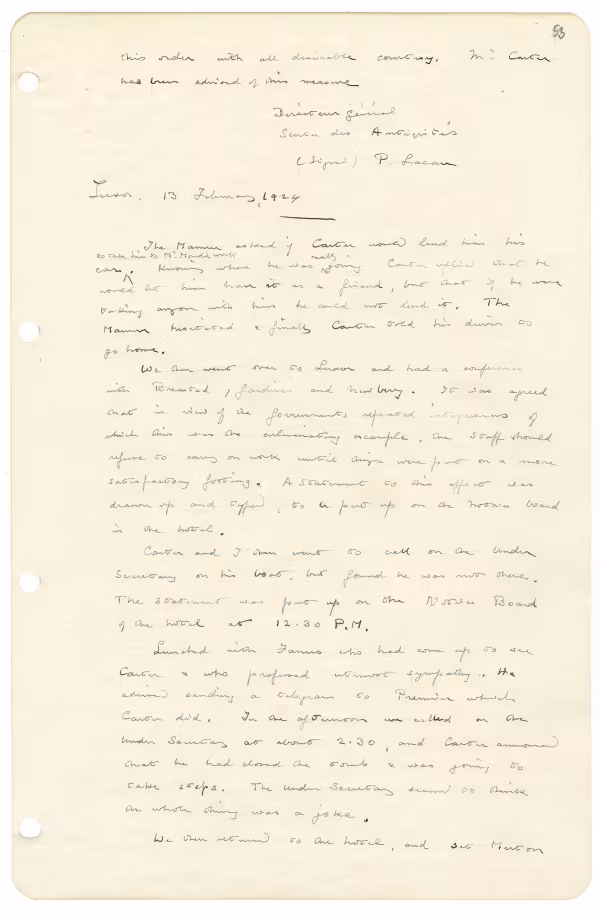 53
this order with all desirable courtesy. Mr Carter
has been advised of this measure
Directeur général
Service des Antiquités
(Signed) P. Lacau
Luxor. 13 February, 1924
The Mamur asked if Carter would lend him his
to take him to Mr Mond's work
car. Knowing where he was really going Carter replied that he
would let him have it as a friend, but that if he were
taking anyone with him he could not lend it. The
Mamur hesitated & finally Carter told his driver to
go home.
We then went over to Luxor and had a conference
with Breasted, Gardiner and Newberry. It was agreed
that in view of the Government's repeated interferences of
which this was the culminating example, the Staff should
refuse to carry on work until things were put on a more
satisfactory footing. A statement to this effect was
drawn up and typed, to be put up on the notice board
in the hotel.
Carter and I then went to call on the Under
Secretary on his boat, but found he was not there.
The statement was put up on the Notice Board
of the hotel at 12.30 P.M.
Lunched with Fanus who had come up to see
Carter & who professed utmost sympathy. He
advised sending a telegram to Premier which
Carter did. In the afternoon we called on the
Under Secretary at about 2.30, and Carter announced
that he had closed the tomb & was going to
take steps. The Under Secretary seemed to think
the whole thing was a joke.
We then returned to the hotel, and sat Merton